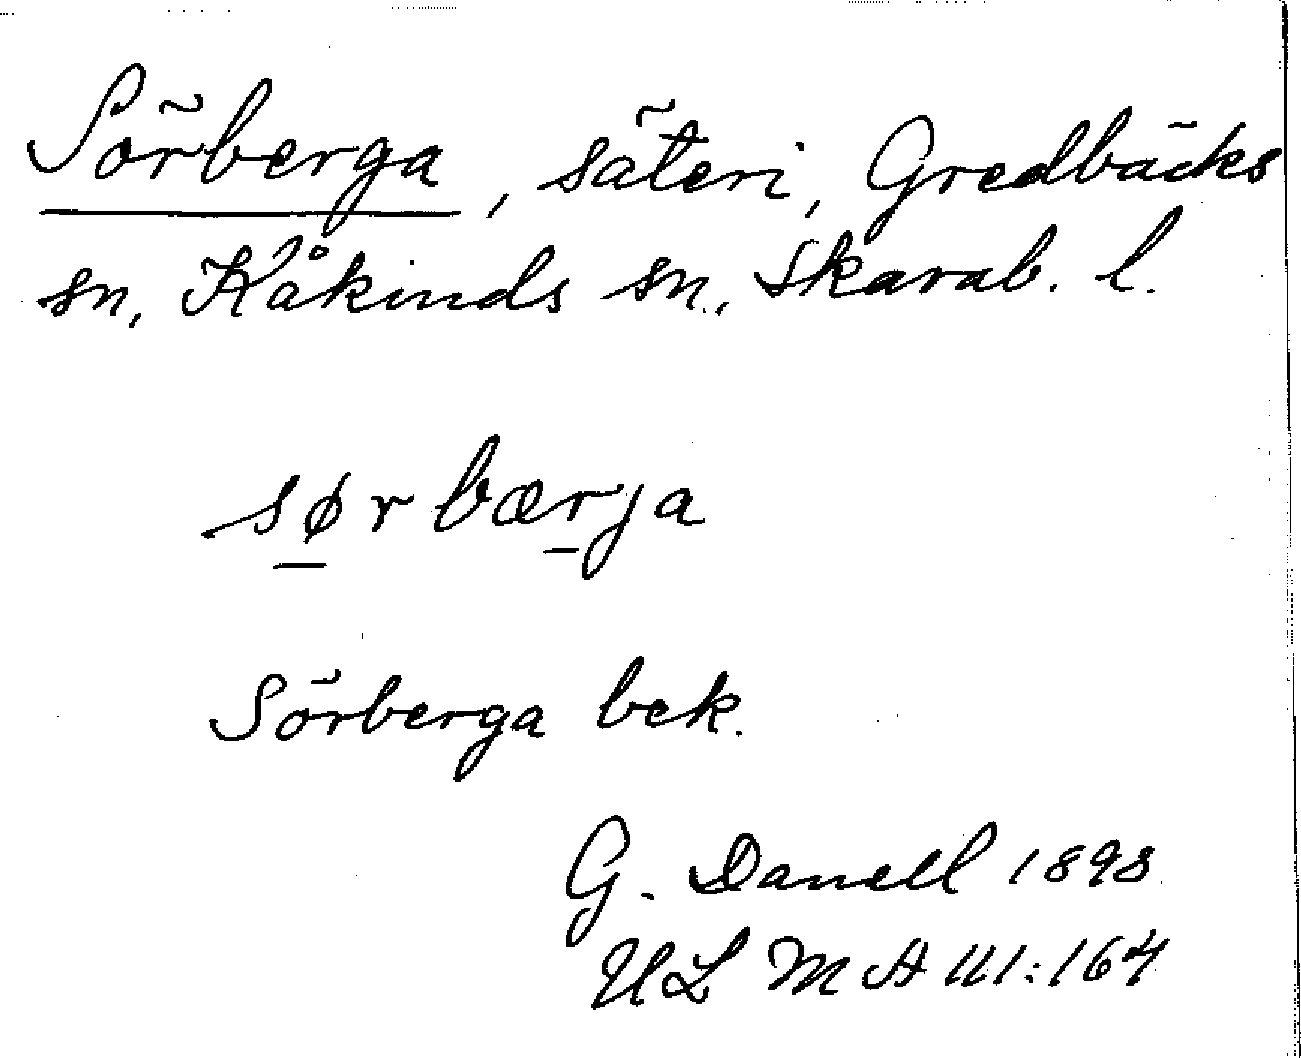 Sörberga, säteri, Gredbäcks
sn, Kåkinds sn., Skarab. l.
sørbærja
Sörberga bek.
G. Danell 1898
ULMA 111:164